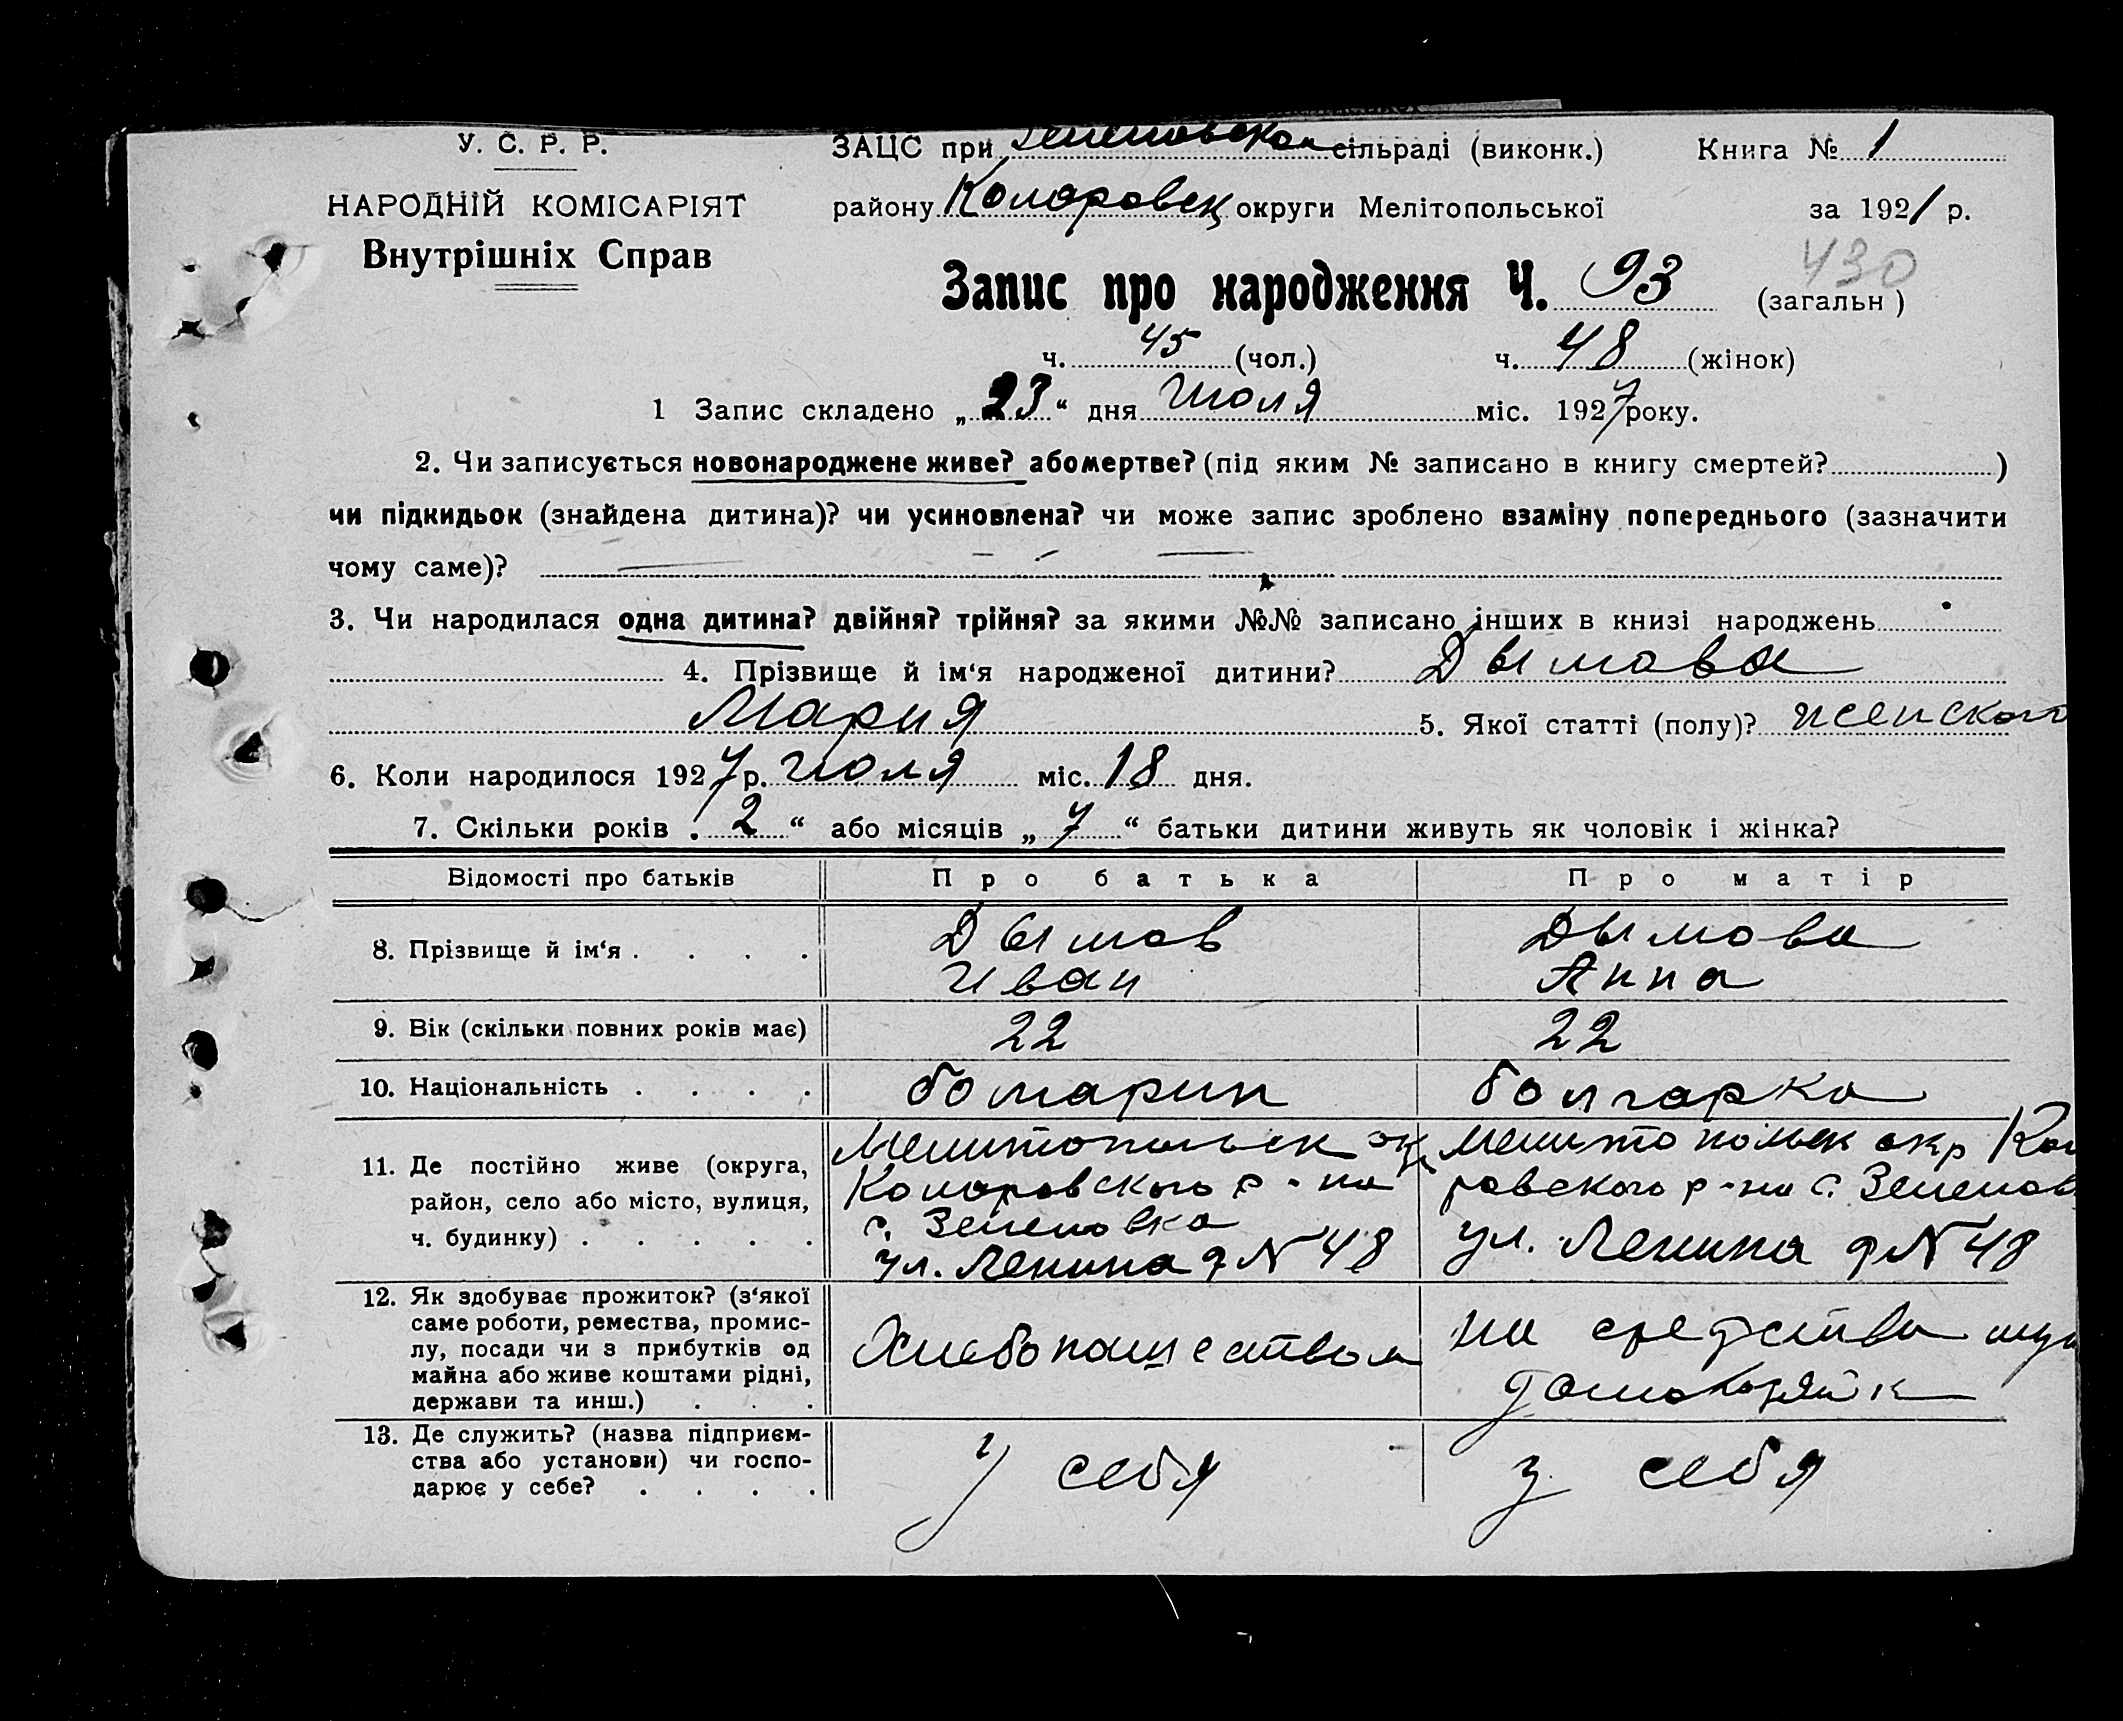 У. С. Р. Р.
НАРОДНІЙ КОМІСАРІЯТ
Внутрішніх Справ
ЗАЦС при Зеленовском сільраді (виконк.) Книга № 1
району Коларовск округи Мелітопольської за 1921 р.
430
Запис про народження Ч. 93 (загальн)
ч. 45 (чол.) ч. 48 (жінок)
1 Запис складено „23“ дня Июля міс. 1927 року.
2. Чи записується новонароджене живе? або мертве? (під яким № записано в книгу смертей? )
чи підкидьок (знайдена дитина)? чи усиновлена? чи може запис зроблено взаміну попереднього (зазначити
чому саме)?
3. Чи народилася одна дитина? двійня? трійня? за якими №№ записано інших в книзі народжень
4. Прізвище й ім‘я народженої дитини? Дымова
Мария 5. Якої статті (полу)? женского
6. Коли народилося 1927 р. Июля міс. 18 дня.
7. Скільки років „2“ або місяців „7“ батьки дитини живуть як чоловік і жінка?
Відомості про батьків Про батька Про матір
8. Прізвище й ім‘я . . . . Дымов Иван Дымова Анна
9. Вік (скільки повних років має) 22 22
10. Національність . . . . болгарин болгарка
11. Де постійно живе (округа,
район, село або місто, вулиця,
ч. будинку) . . . . .
Мелитопольск ок
Коларовского р-на
с. Зеленовка
ул. Ленина д N 48
Мелитопольск окр Кол
ровского р-на с. Зеленов
ул. Ленина д N 48
12. Як здобуває прожиток? (з‘якої
саме роботи, ремества, промис-
лу, посади чи з прибутків од
майна або живе коштами рідні,
держави та инш.) . . .
Хлебопашеством
на средства муж
домохозяйк
13. Де служить? (назва підприєм-
ства або установи) чи госпо-
дарює у себе? . . . .
у себя
у себя